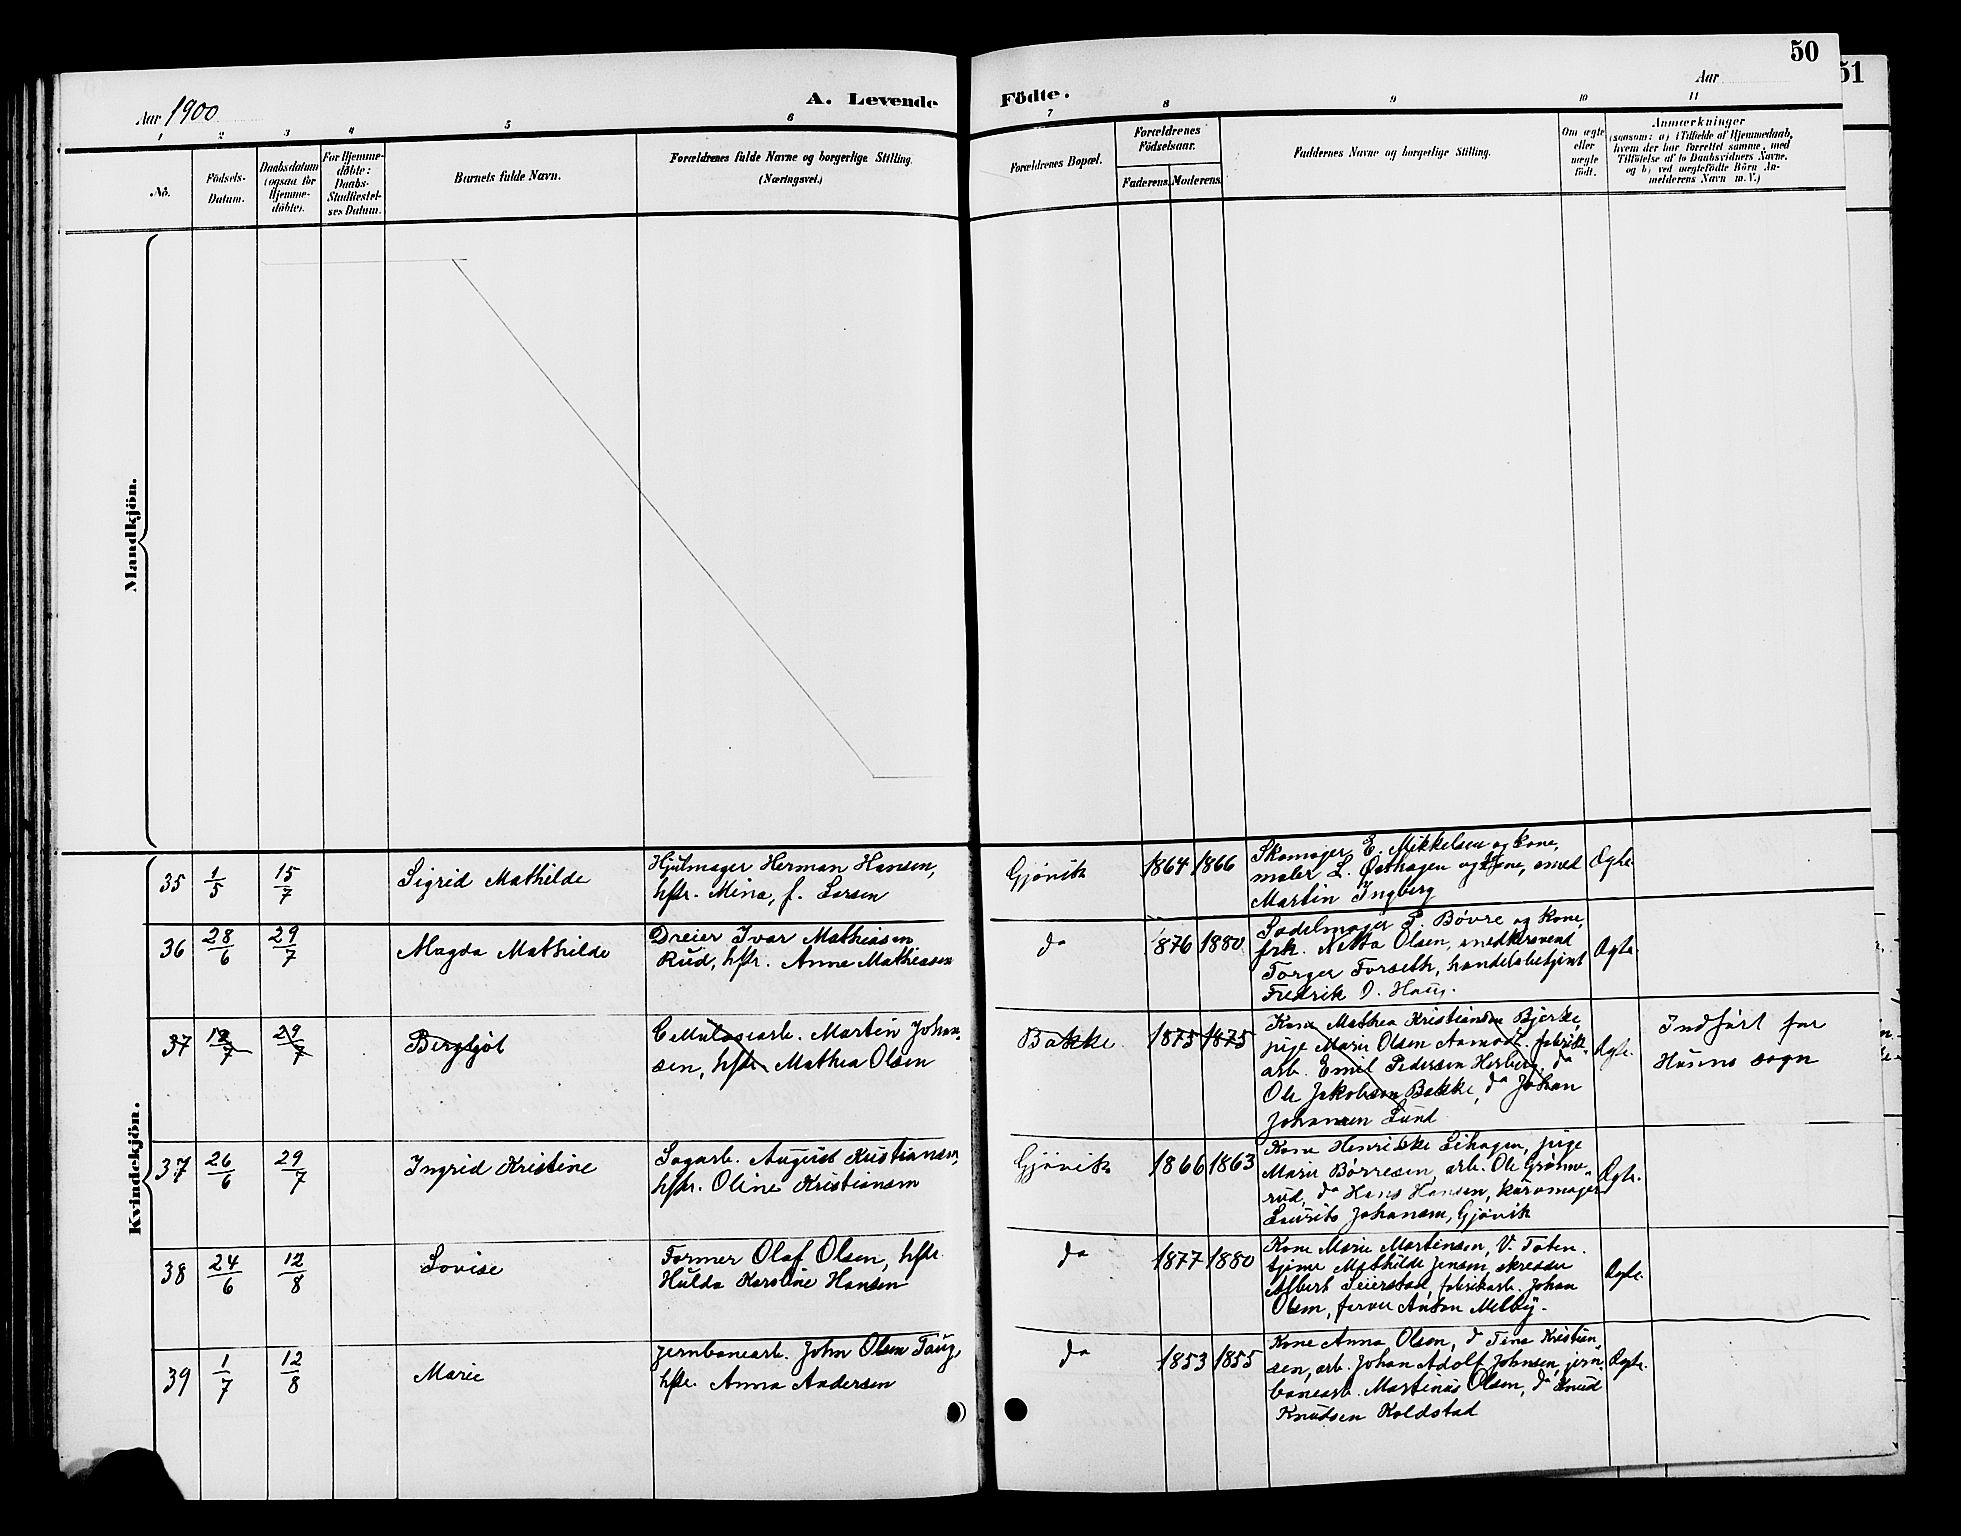 50
51
Aar 1900
A. Levende Födte.
Aar
1 2 3 4 5 6 7 8 9 10 11
No.
Födsels-
Datum.
Daabsdatum
(ogsaa for
Hjemme-
døbte).
For Hjemme-
døbte:
Daabs-
Stadfæstel-
ses Datum.
Barnets fulde Navn.
Forældrenes fulde Navne og borgerlige Stilling.
(Næringsvei.)
Forældrenes Bopæl.
Forældrenes
Födselsaar.
Faderens. Moderens.
Faddernes Navne og borgerlige Stilling.
Om ægte
eller
uægte
født.
Anmærkninger
(saasom: a) i Tilfælde af Hjemmedaab,
hvem der har forrettet samme, med
Tilføielse af to Daabsvidners Navne,
og b) ved uægtefødte Börn An-
melderens Navn m. V.)
Mandkjön.
Kvindekjön.
35 1/5 15/7 Sigrid Mathilde
Hjulmager Herman Hansen,
hstr. Mina, f. Larsen
Gjøvik 1864 1866
Skomager E. Mikkelsen og kone,
maler L. Østhagen og kone, smed
Martin Ingberg
Ægte
36 28/6 29/7 Magda Mathilde
Dreier Ivar Mathiasen
Rud, hstr. Anna Mathiasen
do 1876 1880
Sadelmager P. Bøvre og kone,
frk. Netta Olsen, snedkersvend
Torger Forseth, handelsbetjent
Fredrik D. Haug.
Ægte
37 12/7 29/7 Bergljot
Cellulosearb. Martin Johan-
sen, hstr. Mathea Olsen
Bakke 1875 1875
Kone Mathea Kristiansen Bjerke,
pige Marie Olsen Aamodt, fabrik-
arb. Emil Pedersen Herberg, do
Ole Jakobsen Bakke, do Johan
Johansen Lund
Ægte.
Indført for
Hunns sogn
37 26/6 29/7 Ingrid Kristine
Sagarb. August Kristiansen,
hstr. Oline Kristiansen
Gjøvik 1866 1863
Kone Henrikke Lihagen, pige
Marie Børresen, arb. Ole Grønne-
rud, do Hans Hansen, kurvmager
Laurits Johansen, Gjøvik
Ægte.
38 24/6 12/8 Lovise
Former Olaf Olsen, hstr.
Hulda Karoline Hansen
do 1877 1880
Kone Marie Martinsen, V. Toten.
tjener Mathilde Jensen, skredder
Albert Seierstad, fabrikarb. Johan
Olsen, farver Anton Melby.
Ægte.
39 1/7 12/8 Marie
Jernbanearb. John Olsen
hstr. Anna Andersen
do 1853 1855
Kone Anna Olsen, do Tina Kristian-
sen, arb. Johan Adolf Johnsen, jern-
banearb. Martinus Olsen, do Knud
Knudsen Koldstad
Ægte.